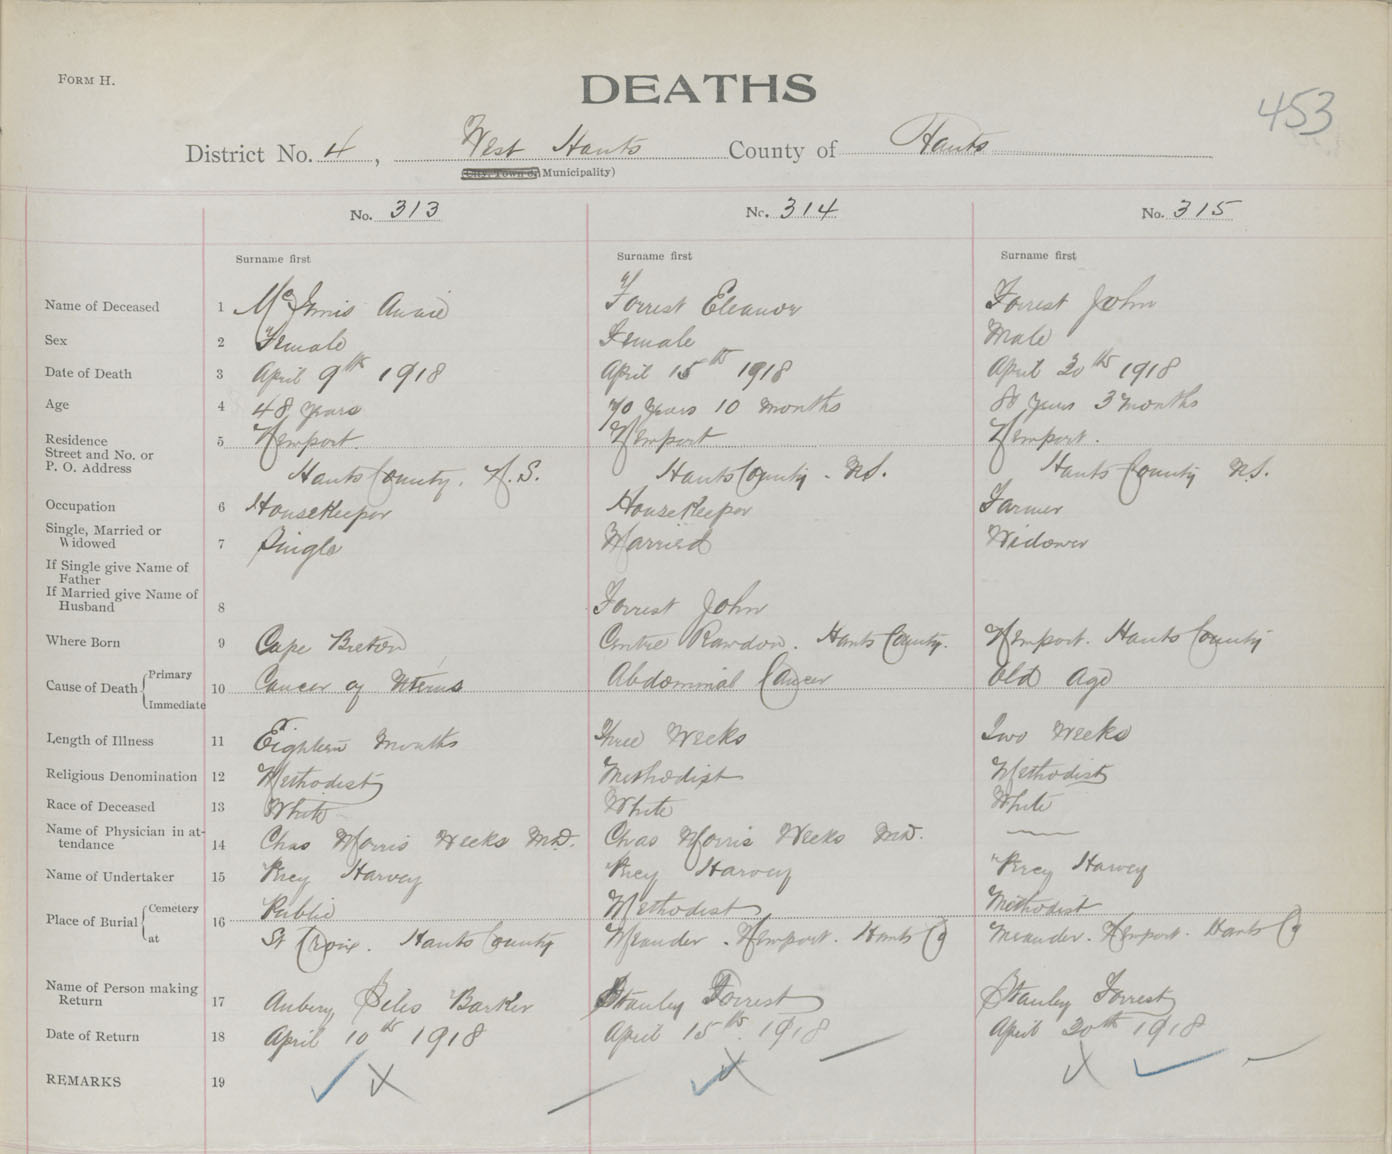 FORM H.
DEATHS
453
District No. 4, West Hants County of Hants
(City, Town or Municipality)
No. 313 No. 314 No. 315
Surname first Surname first Surname first
Name of Deceased 1 Annie Forrest Eleanor Forrest John
Sex 2 Female Female Male
Date of Death 3 April 9th 1918 April 15th 1918 April 20th 1918
Age 4 48 years 70 years 10 months 80 years 3 months
Residence 5 Newport Newport Newport.
Street and No. or
P. O. Address Hants County. N.S. Hants County. N.S. Hants County N.S.
Occupation 6 HouseKeeper HouseKeeper Farmer
Single, Married or
Widowed 7 Single Married Widower
If Single give Name of
Father
If Married give Name of
Husband 8 Forrest John
Where Born 9 Cape Breton Centre Rawdon. Hants County. Newport. Hants County
Cause of Death { Primary
10 Cancer of Uterus Abdominal Cancer Old Age
Immediate
Length of Illness 11 Eighteen Months Three Weeks Two Weeks
Religious Denomination 12 Methodist Methodist Methodist
Race of Deceased 13 White White White
Name of Physician in at-
tendance 14 Chas Morris Weeks M.D. Chas Morris Weeks M.D. —
Name of Undertaker 15 Percy Harvey Percy Harvey Percy Harvey
Place of Burial { Cemetery 16 Public Methodist Methodist
at St Croix. Hants County Meander. Newport. Hants Co Meander. Newport. Hants Co
Name of Person making
Return 17 Barker Stanley Forrest Stanley Forrest
Date of Return 18 April 10th 1918 April 15th 1918 April 20th 1918
REMARKS 19